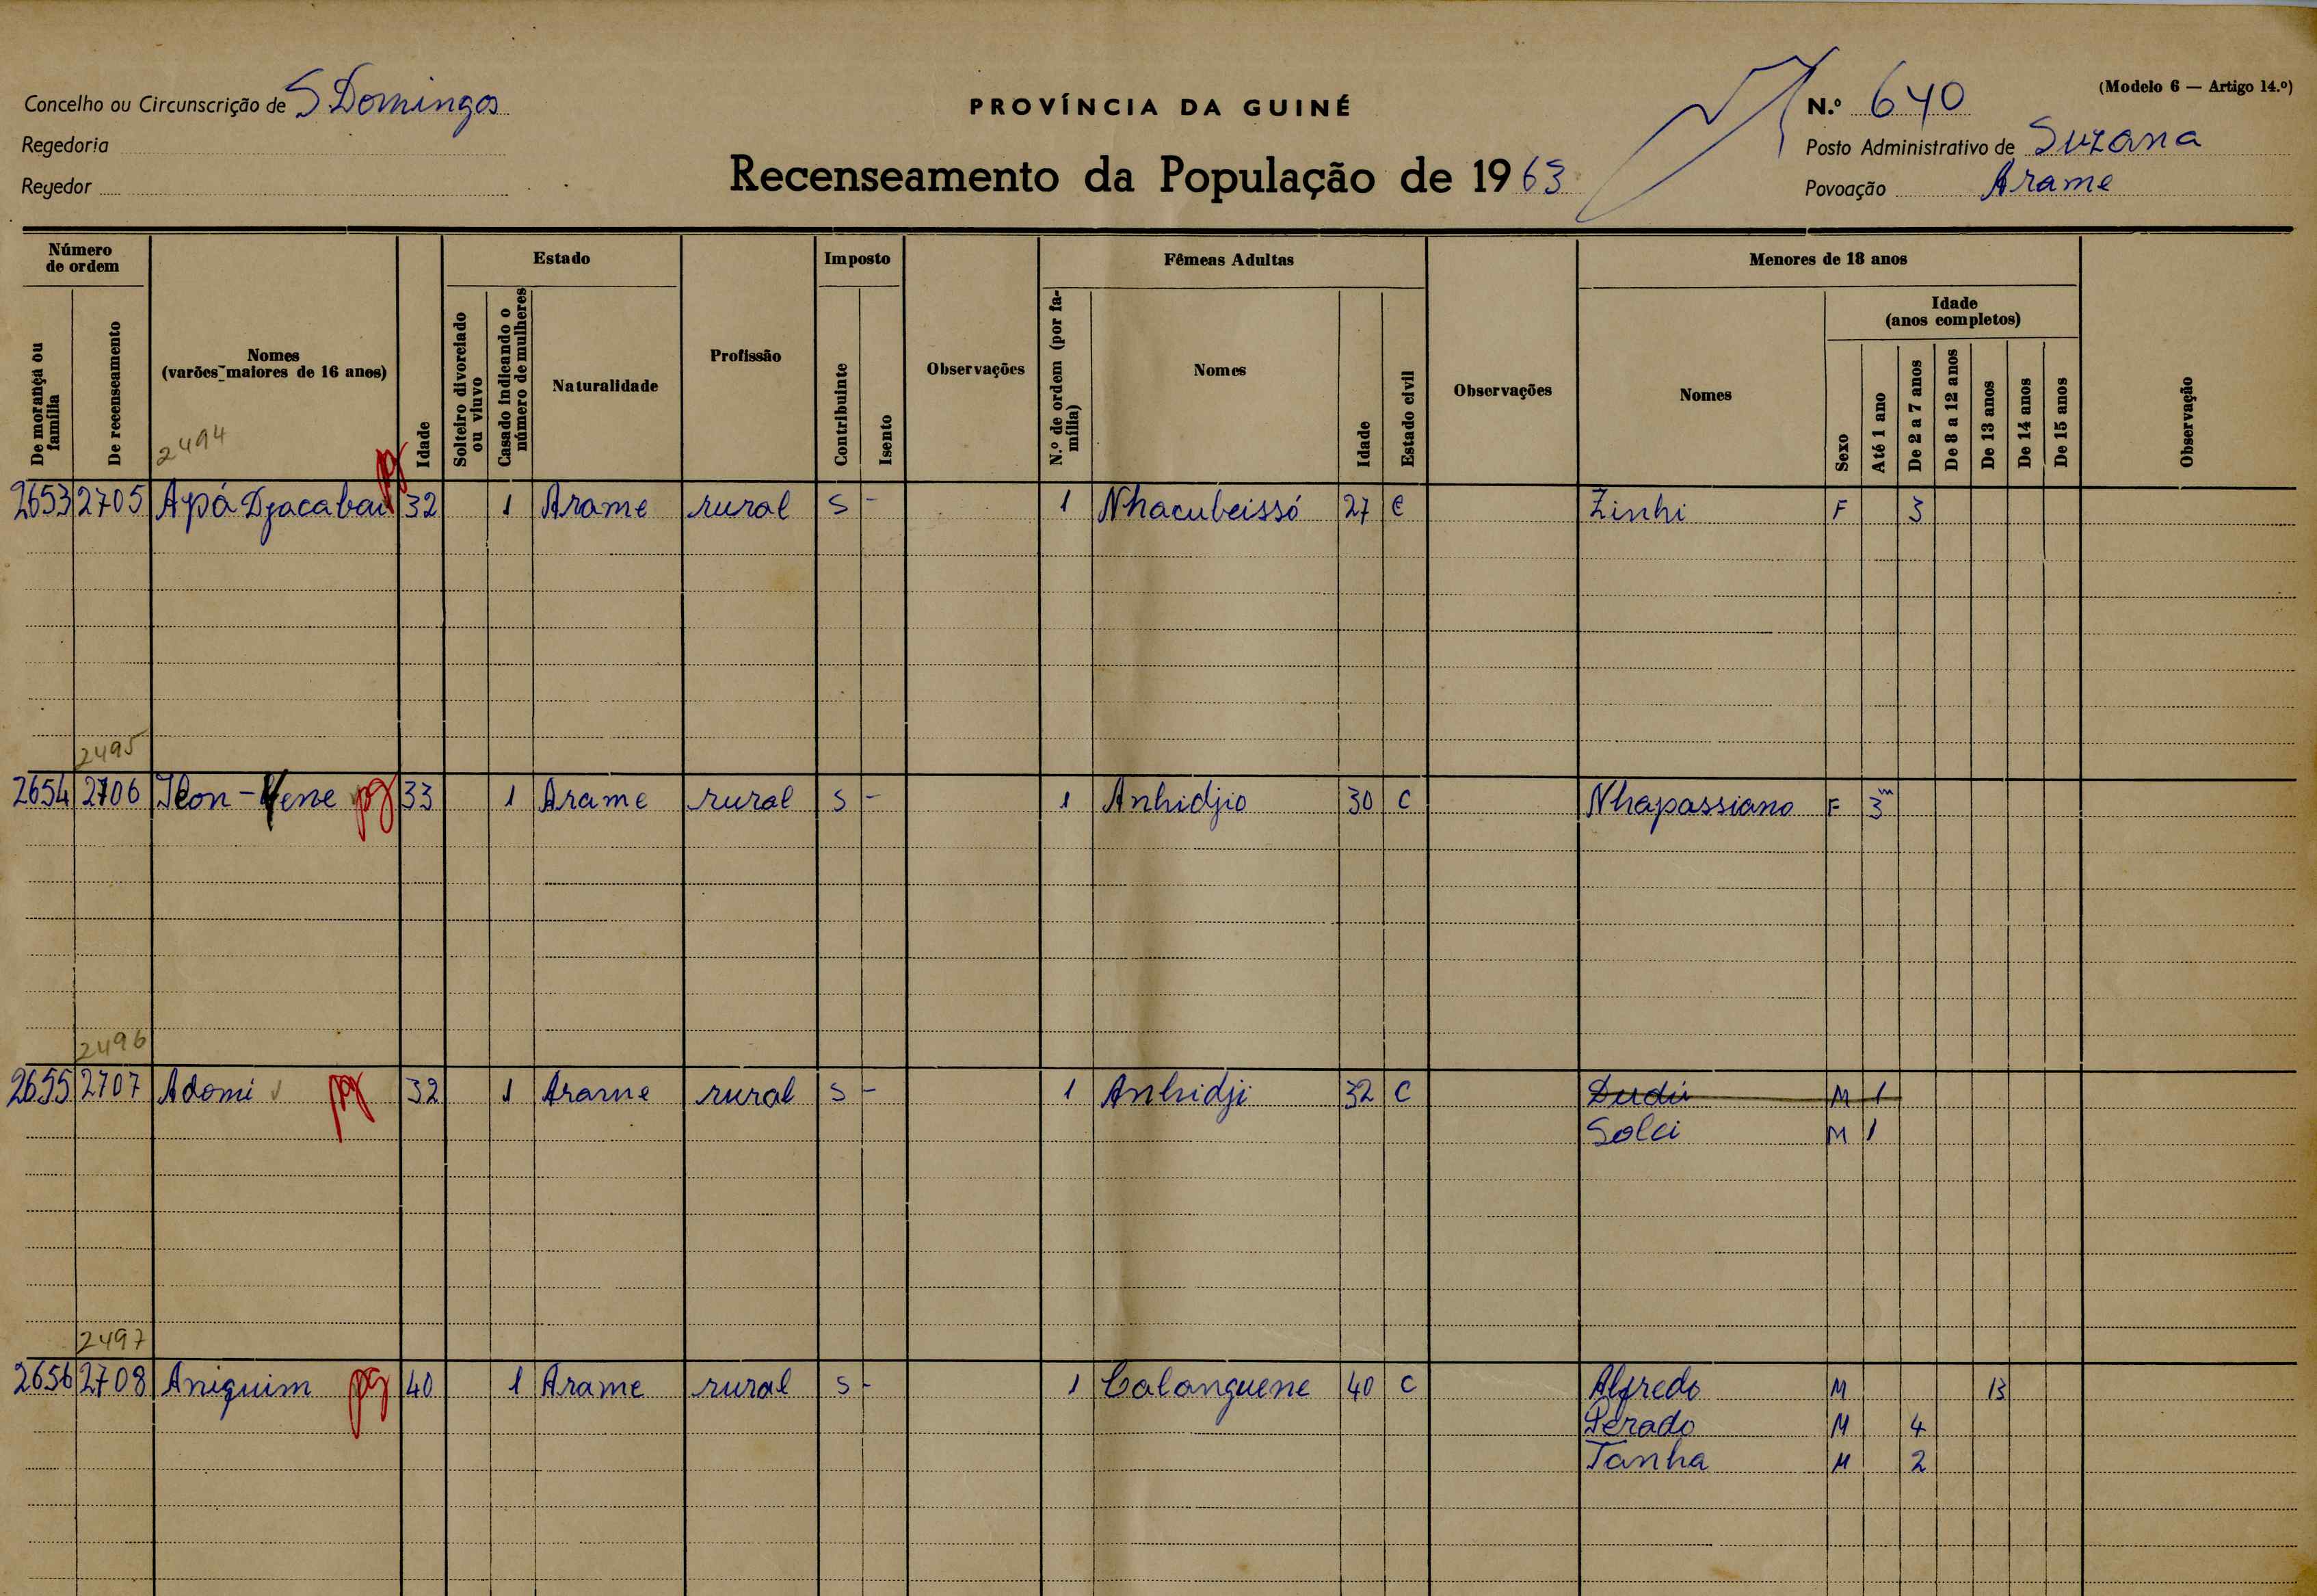 (Modelo 6 — Artigo 14.º)
Concelho ou Circunscrição de S Domingos
PROVÍNCIA DA GUINÉ
N.º 640
Regedoria
Posto Administrativo de Suzana
Regedor
Recenseamento da População de 1963
Povoação Arame
Número de ordem
Estado
Imposto
Fêmeas Adultas
Menores de 18 anos
De morança ou família
De recenseamento
Nomes
(varões maiores de 16 anos)
Idade
Solteiro divorciado ou viuvo
Casado indicando o número de mulheres
Naturalidade
Profissão
Contribuinte
Isento
Observações
N.º de ordem (por família)
Nomes
Idade
Estado civil
Observações
Nomes
Sexo
Idade
(anos completos)
Até 1 ano
De 2 a 7 anos
De 8 a 12 anos
De 13 anos
De 14 anos
De 15 anos
Observação
2494
2653 2705 Apá Djacabau pg 32 1 Arame rural S - 1 Nhacubeissó 27 C Zinhi F 3
2495
2654 2706 pg 33 1 Arame rural S - 1 Anhidjio 30 C Nhapassiano F 3m
2496
2655 2707 Adomi pg 32 1 Arame rural S - 1 Anhidji 32 C Dudú M 1
Solei M 1
2497
2656 2708 Aniquim pg 40 1 Arame rural S - 1 Calanguene 40 C Alfredo M 13
Perado M 4
Tanha M 2